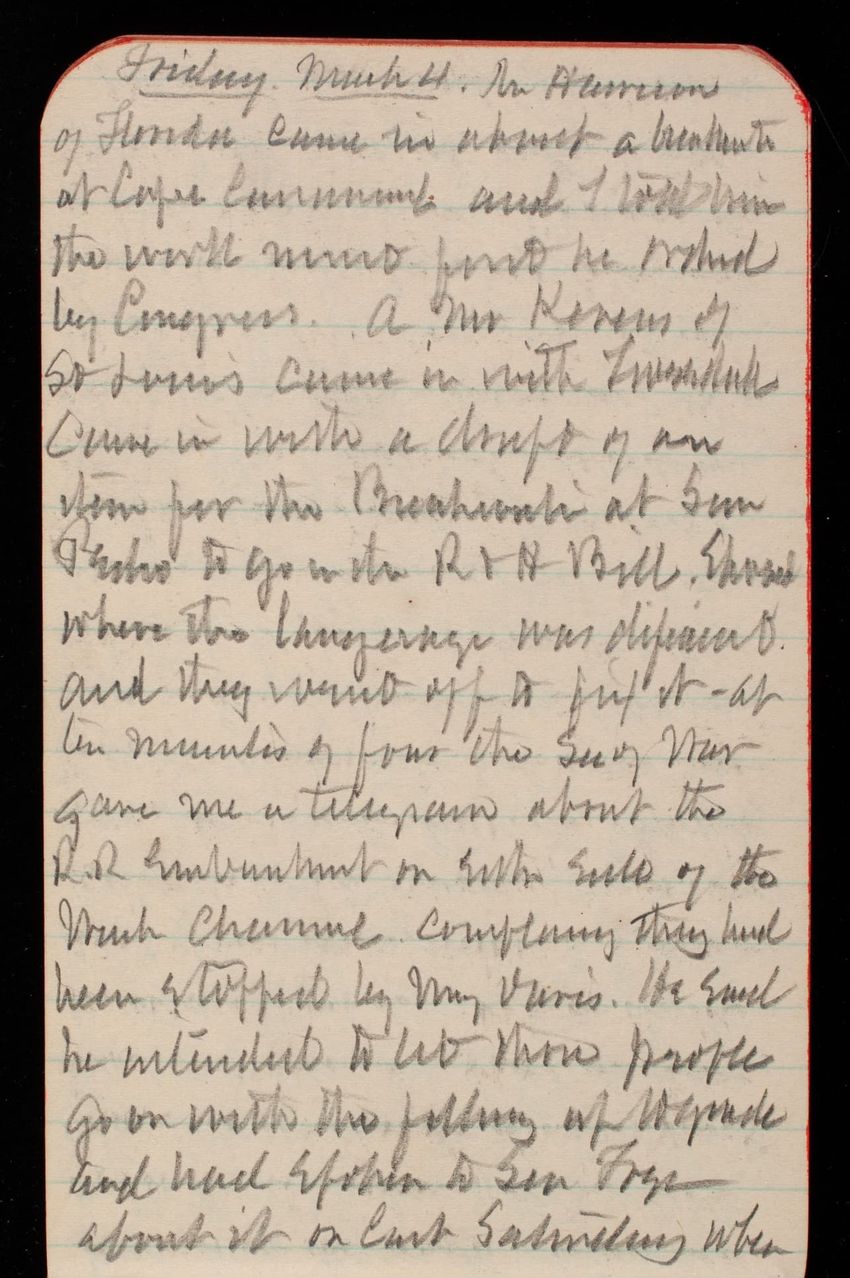 Friday. March 4. Mr Harrison
of Florida came in about a breakwater
at Cape Canaveral and I told him
the work must first be ordered
by Congress. A Mr Kerens of
St Louis came in with
came in with a draft of an
item for the Breakwater at San
Pedro to go in the R & H Bill. Showed
where the langerage was difient.
and they went off to fix it - at
ten minutes of four the Sec of War
gave me a telegram about the
R.R Embankment on Esth End of the
Wash Channel complaing they had
been stopped by Maj Davis. He said
he intended to let those people
go on with the filling up to grade
and had spoken to Sen Frye
about it on last Saturday when